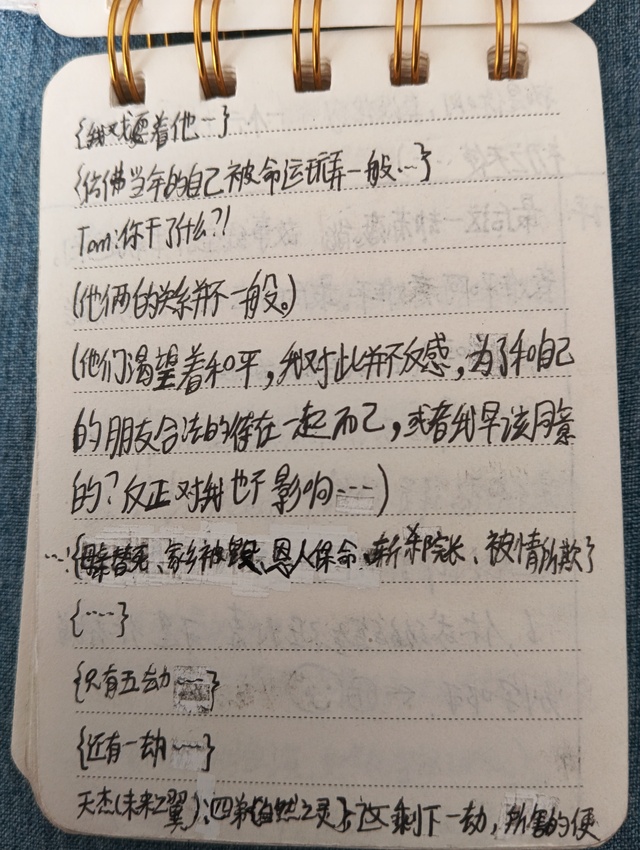 {我戏耍着他…}
{仿佛当年的自己被命运玩弄一般…}
Tom:你干了什么?!
(他俩的关系并不一般。)
(他们渴望着和平,我对此并不反感,为了和自己
的朋友合法的待在一起而已,或者我早该同意
的?反正对我也不影响……)
…{母亲替死、家乡被毁、恩人保命、斩杀院长、被情所欺}
{……}
{只有五劫……}
{还有一劫……}
天杰(未来之翼):四弟(自然之灵),这剩下一劫,所害的便